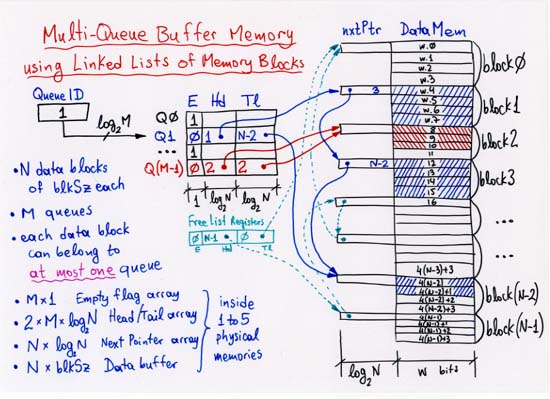 Multi-Queue Buffer Memory
using Linked Lists of Memory Blocks
Queue ID
1
log₂M
E Hd Tl
Q0 1
Q1 0 1 N-2
Q(M-1) 0 2 2
1 log₂N log₂N
Free List Registers
0 N-1 0
E Hd Tl
• N data blocks
of blkSz each
• M queues
• each data block
can belong to
at most one queue
• M×1 Empty flag array
• 2×M×log₂N Head/Tail array
• N×log₂N Next Pointer array
• N×blkSz Data buffer
inside
1 to 5
physical
memories
nxtPtr DataMem
w.0
w.1
w.2
w.3
block0
3 w.4
w.5
w.6
w.7
block1
8
9
10
11
block2
N-2 12
13
14
15
block3
16
...
...
4(N-3)+3
4(N-2)
4(N-2)+1
4(N-2)+2
4(N-2)+3
block(N-2)
4(N-1)
4(N-1)+1
4(N-1)+2
4(N-1)+3
block(N-1)
log₂N
w bits